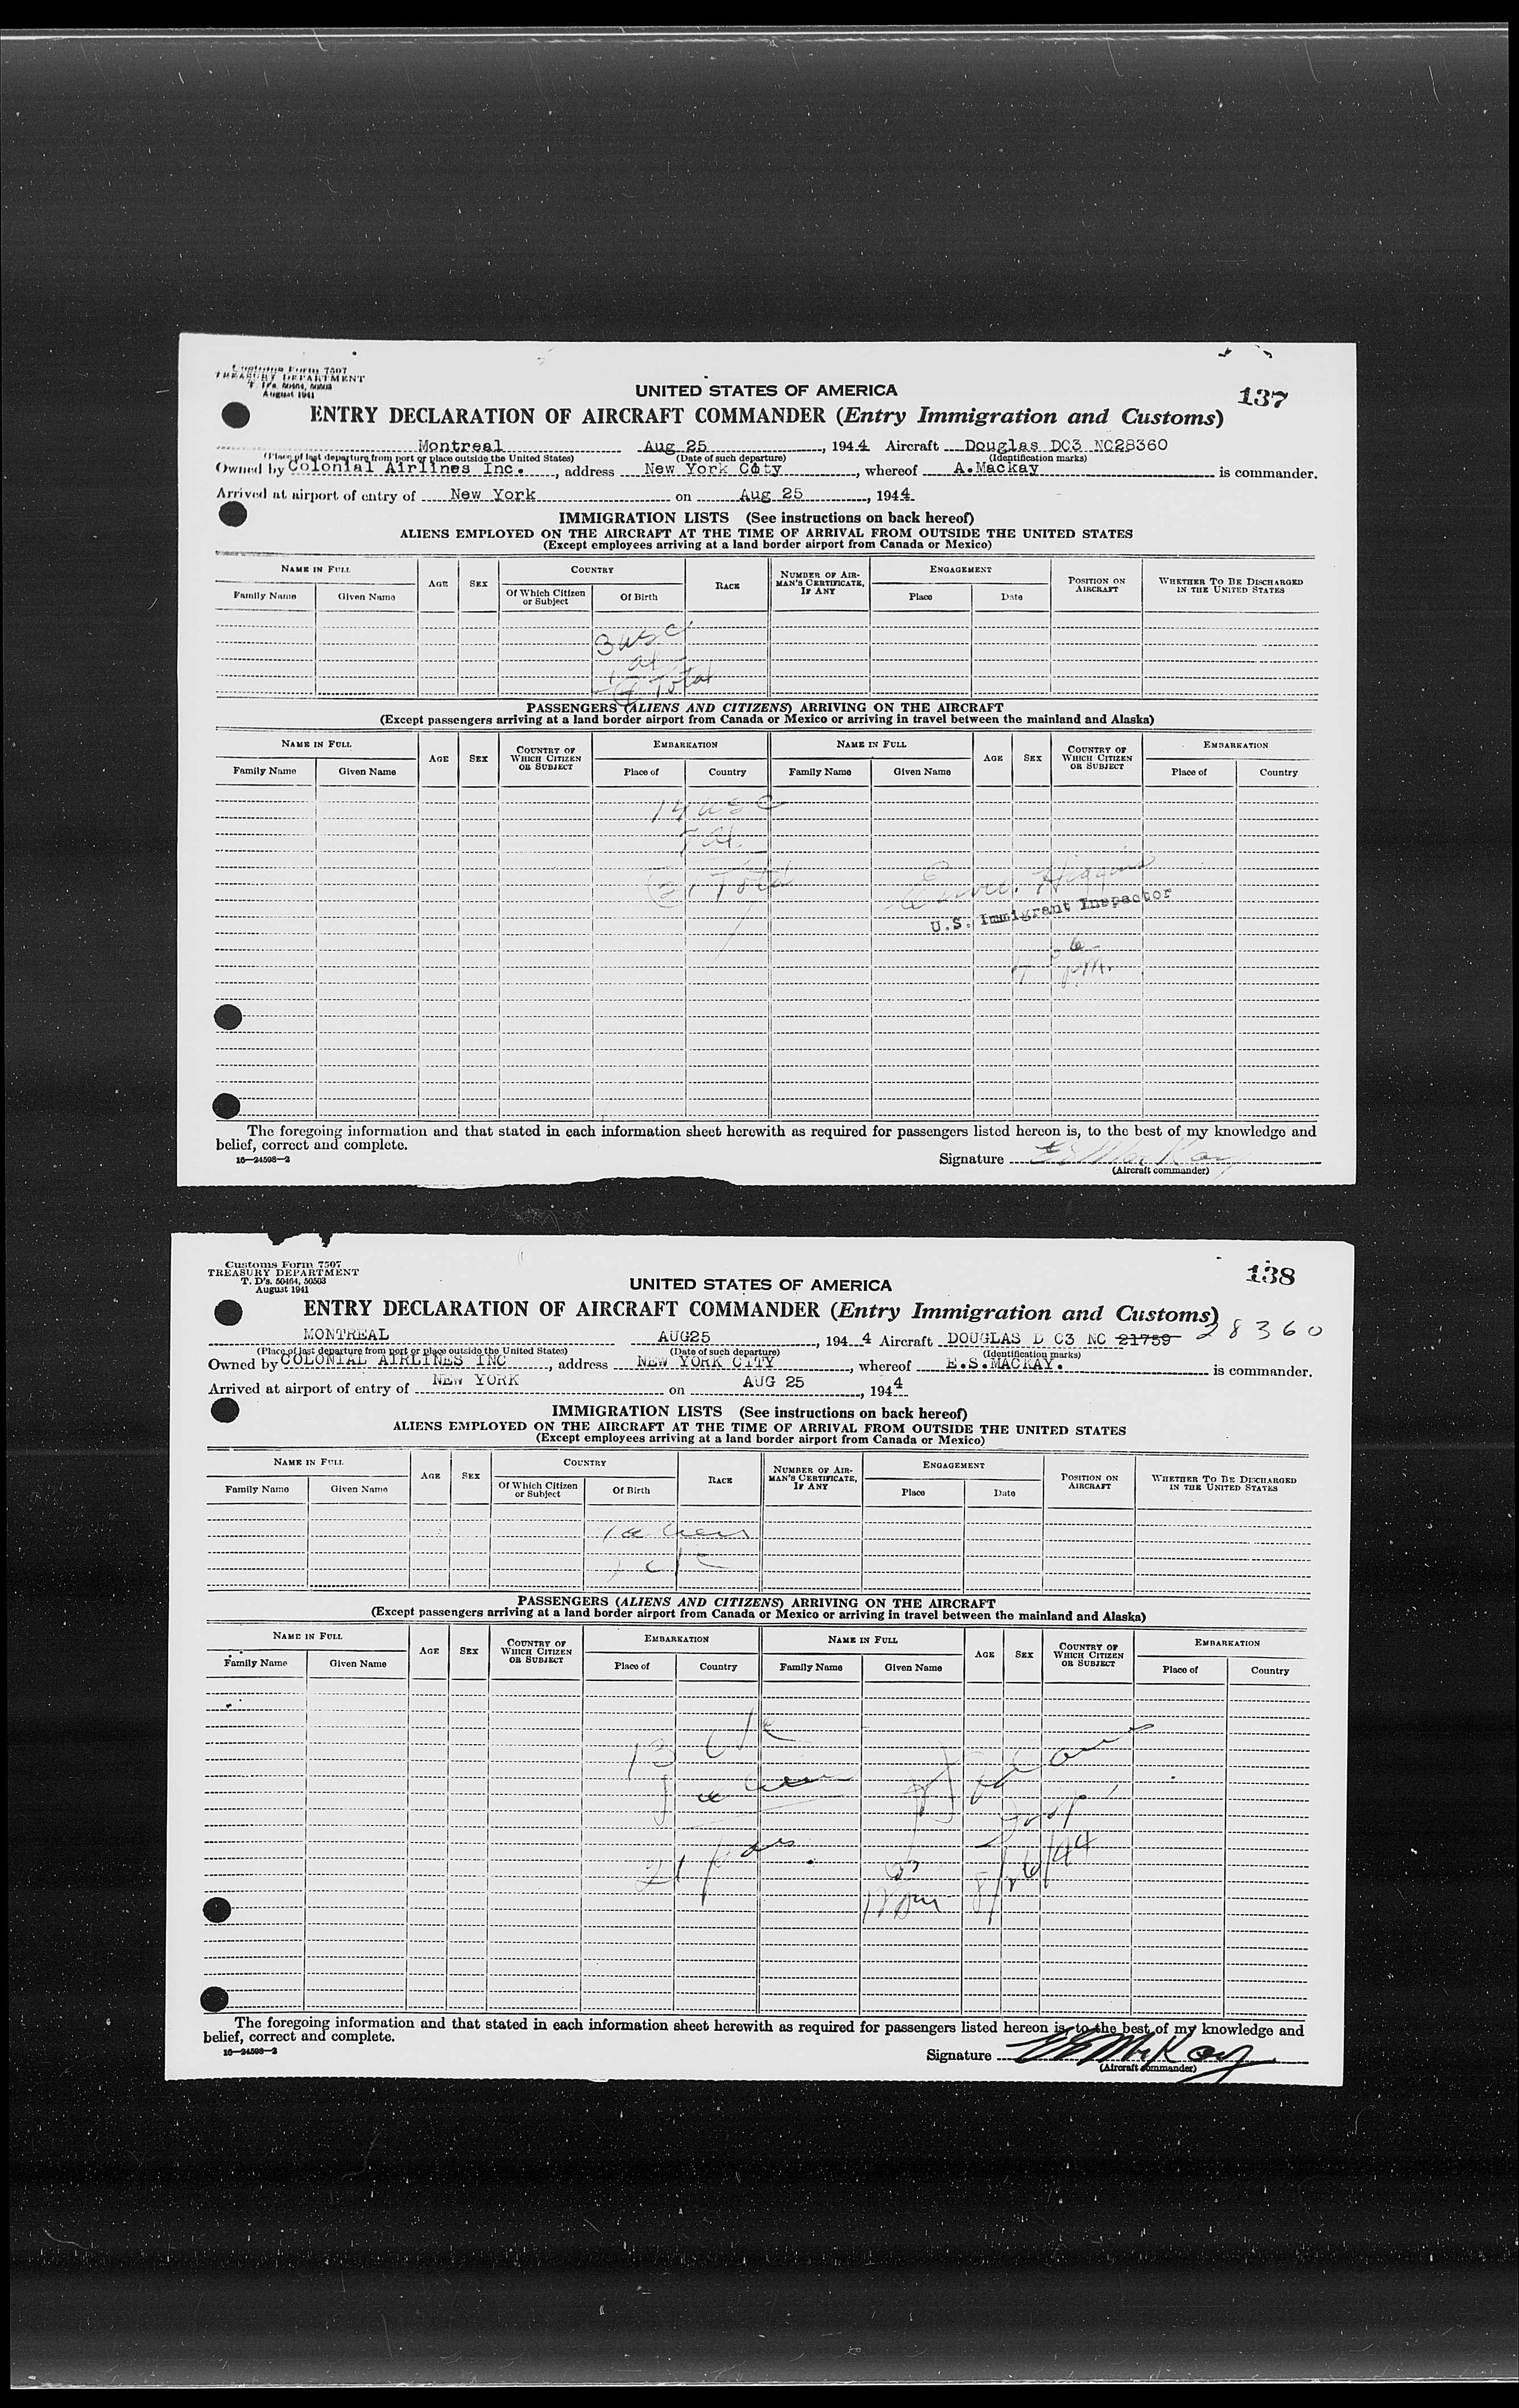 Customs Form 7507
TREASURY DEPARTMENT
T. D's. 50464, 50503
August 1941
137
UNITED STATES OF AMERICA
ENTRY DECLARATION OF AIRCRAFT COMMANDER (Entry Immigration and Customs)
Montreal Aug 25, 1944 Aircraft Douglas DC3 NC28360
(Place of last departure from port or place outside the United States) (Date of such departure) (Identification marks)
Owned by Colonial Airlines Inc., address New York City, whereof A.Mackay is commander.
Arrived at airport of entry of New York on Aug 25, 1944
IMMIGRATION LISTS (See instructions on back hereof)
ALIENS EMPLOYED ON THE AIRCRAFT AT THE TIME OF ARRIVAL FROM OUTSIDE THE UNITED STATES
(Except employees arriving at a land border airport from Canada or Mexico)
NAME IN FULL AGE SEX COUNTRY RACE NUMBER OF AIRMAN'S CERTIFICATE, IF ANY ENGAGEMENT POSITION ON AIRCRAFT WHETHER TO BE DISCHARGED IN THE UNITED STATES
Family Name Given Name Of Which Citizen or Subject Of Birth Place Date
3 usc
1 al
4 Total
PASSENGERS (ALIENS AND CITIZENS) ARRIVING ON THE AIRCRAFT
(Except passengers arriving at a land border airport from Canada or Mexico or arriving in travel between the mainland and Alaska)
NAME IN FULL AGE SEX COUNTRY OF WHICH CITIZEN OR SUBJECT EMBARKATION NAME IN FULL AGE SEX COUNTRY OF WHICH CITIZEN OR SUBJECT EMBARKATION
Family Name Given Name Place of Country Family Name Given Name Place of Country
14 usc
7 al.
21 Total
Higgins
U.S. Immigrant Inspector
pm.
The foregoing information and that stated in each information sheet herewith as required for passengers listed hereon is, to the best of my knowledge and
belief, correct and complete.
16—24598-2
Signature E S MacKay
(Aircraft commander)
Customs Form 7507
TREASURY DEPARTMENT
T. D's. 50464, 50503
August 1941
138
UNITED STATES OF AMERICA
ENTRY DECLARATION OF AIRCRAFT COMMANDER (Entry Immigration and Customs)
MONTREAL AUG25, 1944 Aircraft DOUGLAS D C3 NC 21759 28360
(Place of last departure from port or place outside the United States) (Date of such departure) (Identification marks)
Owned by COLONIAL AIRLINES INC, address NEW YORK CITY, whereof E.S.MACKAY. is commander.
Arrived at airport of entry of NEW YORK on AUG 25, 1944
IMMIGRATION LISTS (See instructions on back hereof)
ALIENS EMPLOYED ON THE AIRCRAFT AT THE TIME OF ARRIVAL FROM OUTSIDE THE UNITED STATES
(Except employees arriving at a land border airport from Canada or Mexico)
NAME IN FULL AGE SEX COUNTRY RACE NUMBER OF AIRMAN'S CERTIFICATE, IF ANY ENGAGEMENT POSITION ON AIRCRAFT WHETHER TO BE DISCHARGED IN THE UNITED STATES
Family Name Given Name Of Which Citizen or Subject Of Birth Place Date
1 alien
PASSENGERS (ALIENS AND CITIZENS) ARRIVING ON THE AIRCRAFT
(Except passengers arriving at a land border airport from Canada or Mexico or arriving in travel between the mainland and Alaska)
NAME IN FULL AGE SEX COUNTRY OF WHICH CITIZEN OR SUBJECT EMBARKATION NAME IN FULL AGE SEX COUNTRY OF WHICH CITIZEN OR SUBJECT EMBARKATION
Family Name Given Name Place of Country Family Name Given Name Place of Country
13
alien
Insp
21 pas
The foregoing information and that stated in each information sheet herewith as required for passengers listed hereon is, to the best of my knowledge and
belief, correct and complete.
16—24598-2
Signature E S MacKay
(Aircraft commander)